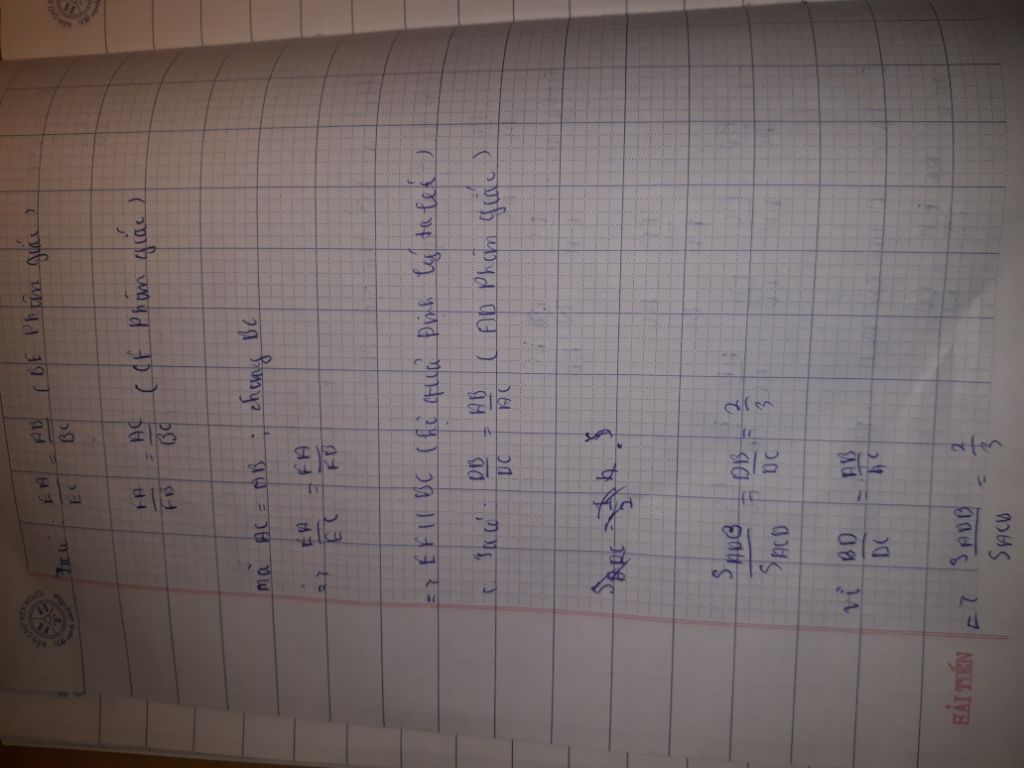 Ta có: EA/EC = AB/BC ( BE phân giác )
FA/FB = AC/BC ( CF phân giác )
mà AC = AB ; chung BC
=> EA/EC = FA/FB
=> EF // BC ( hệ quả Định lý ta lét )
c Ta có: DB/DC = AB/AC ( AD phân giác )
S ADB / S ACD = DB/DC = 2/3
vì BD/DC = AB/AC
=> S ADB / S ACD = 2/3
HẢI TIẾN